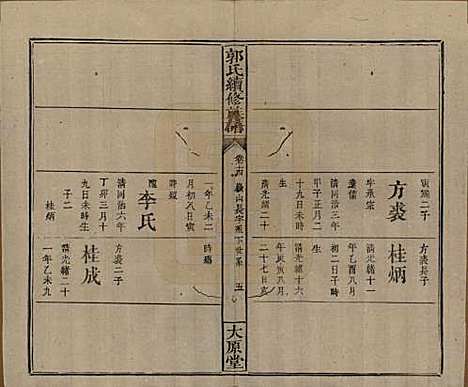 二子
方裘
字承宗
業儒
清同治三年
甲子正月二
十九日未時
生
清光緒二十
方裘長子
桂炳
清光緒十一
年乙酉八月
初二日子時
生
清光緒十六
年庚寅八月
二十七日亥
郭氏續修族譜
卷十四
山長字派下世系
五
大原堂
一年乙未二
月初八日寅
時歿
配
李氏
清同治六年
丁卯三月十
九日未時生
子二
桂炳
時殤
方裘二子
桂成
清光緒二十
一年乙未九